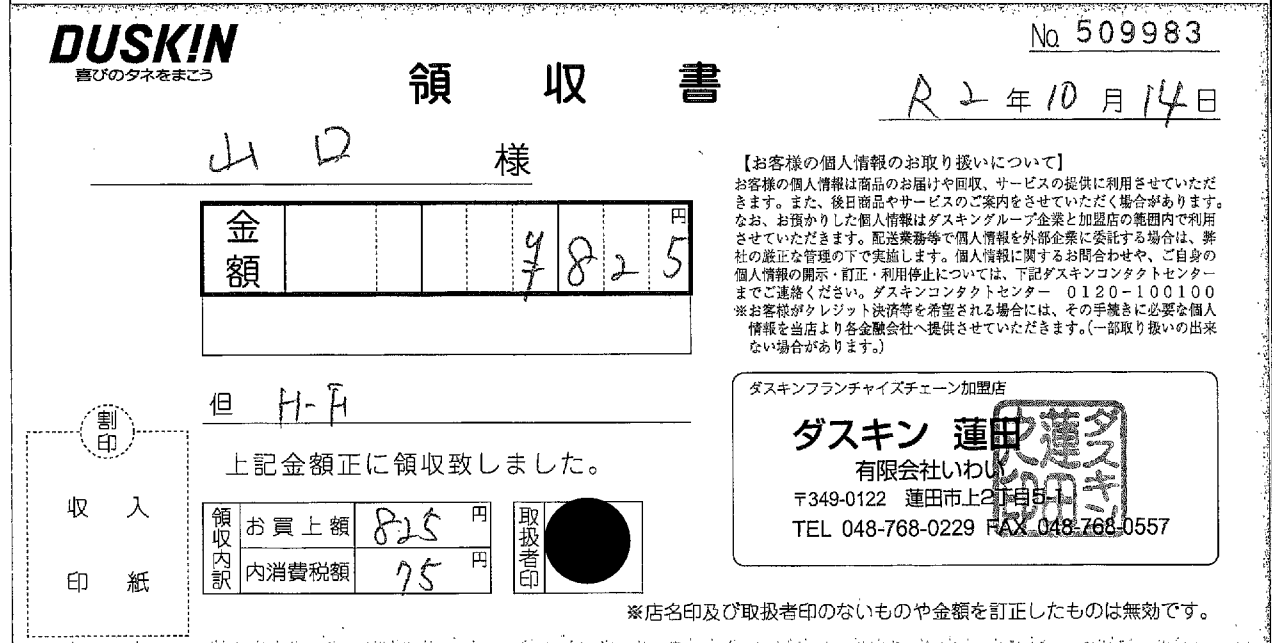 DUSKIN
喜びのタネをまこう
領収書
No. 509983
R2年10月14日
山口 様
金額 ¥825円
但 H-F
上記金額正に領収致しました。
割印
収入
印紙
領収内訳
お買上額 825円
内消費税額 75円
取扱者印
【お客様の個人情報のお取り扱いについて】
お客様の個人情報は商品のお届けや回収、サービスの提供に利用させていただ
きます。また、後日商品やサービスのご案内をさせていただく場合があります。
なお、お預かりした個人情報はダスキングループ企業と加盟店の範囲内で利用
させていただきます。配送業務等で個人情報を外部企業に委託する場合は、弊
社の厳正な管理の下で実施します。個人情報に関するお問合わせや、ご自身の
個人情報の開示・訂正・利用停止については、下記ダスキンコンタクトセンター
までご連絡ください。ダスキンコンタクトセンター 0120-100100
※お客様がクレジット決済等を希望される場合には、その手続きに必要な個人
情報を当店より各金融会社へ提供させていただきます。(一部取り扱いの出来
ない場合があります。)
ダスキンフランチャイズチェーン加盟店
ダスキン 蓮田
有限会社いわい
〒349-0122 蓮田市上2丁目5-1
TEL 048-768-0229 FAX 048-768-0557
ダスキン
蓮田
※店名印及び取扱者印のないものや金額を訂正したものは無効です。